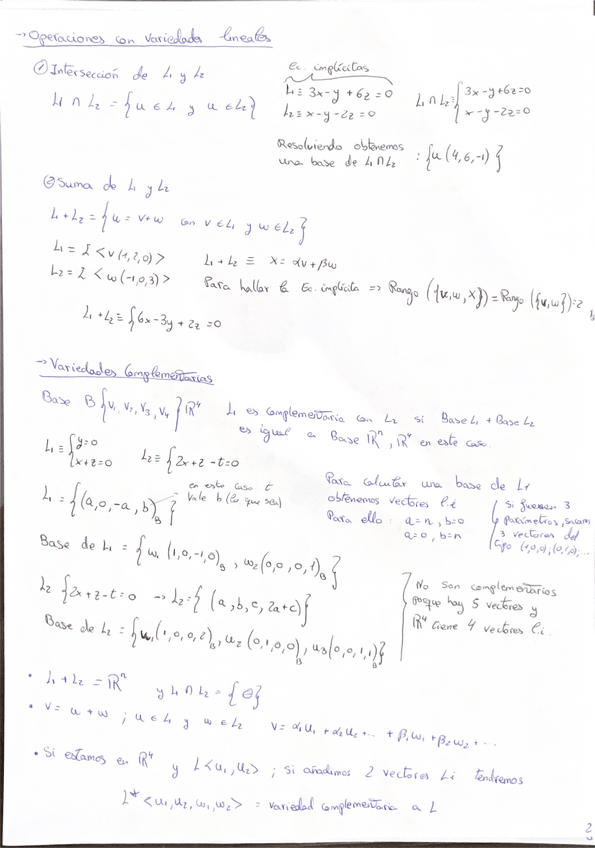 → Operaciones con variedades lineales
① Intersección de L₁ y L₂
L₁ ∩ L₂ = { u ∈ L₁ y u ∈ L₂ }
Ec. implícitas
L₁ ≡ 3x-y+6z=0
L₂ ≡ x-y-2z=0
L₁ ∩ L₂ ≡ { 3x-y+6z=0
x-y-2z=0
Resolviendo obtenemos
una base de L₁ ∩ L₂ : { u (4,6,-1) }
② Suma de L₁ y L₂
L₁ + L₂ = { u = v+w con v ∈ L₁ y w ∈ L₂ }
L₁ = L < v(1,2,0) >
L₁ + L₂ ≡ x = αv + βw
L₂ = L < w(-1,0,3) >
Para hallar la Ec. implícita => Rango ({v,w,x}) = Rango ({v,w}) = 2
L₁ + L₂ ≡ { 6x-3y+2z=0
→ Variedades Complementarias
Base B { v₁, v₂, v₃, v₄ } ℝ⁴
L₁ es complementaria con L₂ si Base L₁ + Base L₂
es igual a Base ℝⁿ, ℝ⁴ en este caso.
L₁ ≡ { y=0
x+z=0
L₂ ≡ { 2x+z-t=0
L₁ = { (a,0,-a,b)_B }
en este caso t
vale b (lo que sea)
Para calcular una base de L₁
obtenemos vectores l.i
Para ello: a=n, b=0
a=0, b=n
Si fuesen 3
parámetros, sacam
3 vectores del
tipo (1,0,0),(0,1,0),...
Base de L₁ = { w₁ (1,0,-1,0)_B , w₂ (0,0,0,1)_B }
L₂ { 2x+z-t=0 → L₂ = { (a,b,c,2a+c) }
Base de L₂ = { u₁ (1,0,0,2)_B , u₂ (0,1,0,0)_B , u₃ (0,0,1,1)_B }
No son complementarios
porque hay 5 vectores y
ℝ⁴ tiene 4 vectores l.i.
• L₁ + L₂ = ℝⁿ y L₁ ∩ L₂ = { Θ }
• v = u + w ; u ∈ L₁ y w ∈ L₂ v = α₁u₁ + α₂u₂ + ... + β₁w₁ + β₂w₂ + ...
• Si estamos en ℝ⁴ y L<u₁,u₂> ; si añadimos 2 vectores Li tendremos
L* <u₁,u₂,w₁,w₂> = variedad complementaria a L
2